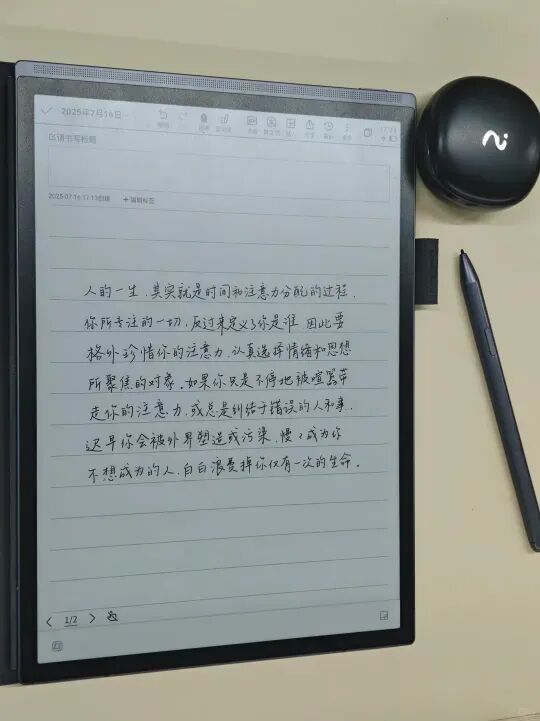 2025年7月16日
请书写标题
2025-07-16 17:13创建 + 编辑标签
人的一生,其实就是时间和注意力分配的过程,
你所专注的一切,反过来定义了你是谁 因此要
格外珍惜你的注意力,认真选择情绪和思想
所聚焦的对象,如果你只是不停地被喧嚣带
走你的注意力,或总是纠结于错误的人和事,
迟早你会被外界塑造或污染,慢々成为你
不想成为的人,白白浪费掉你仅有一次的生命。
1/2